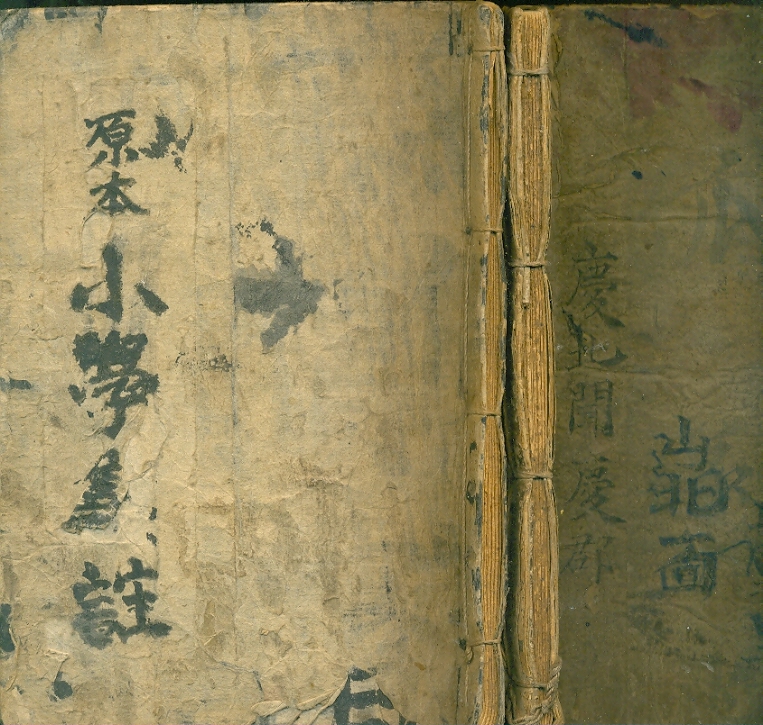 原本
小學集註
慶北聞慶郡
山北面